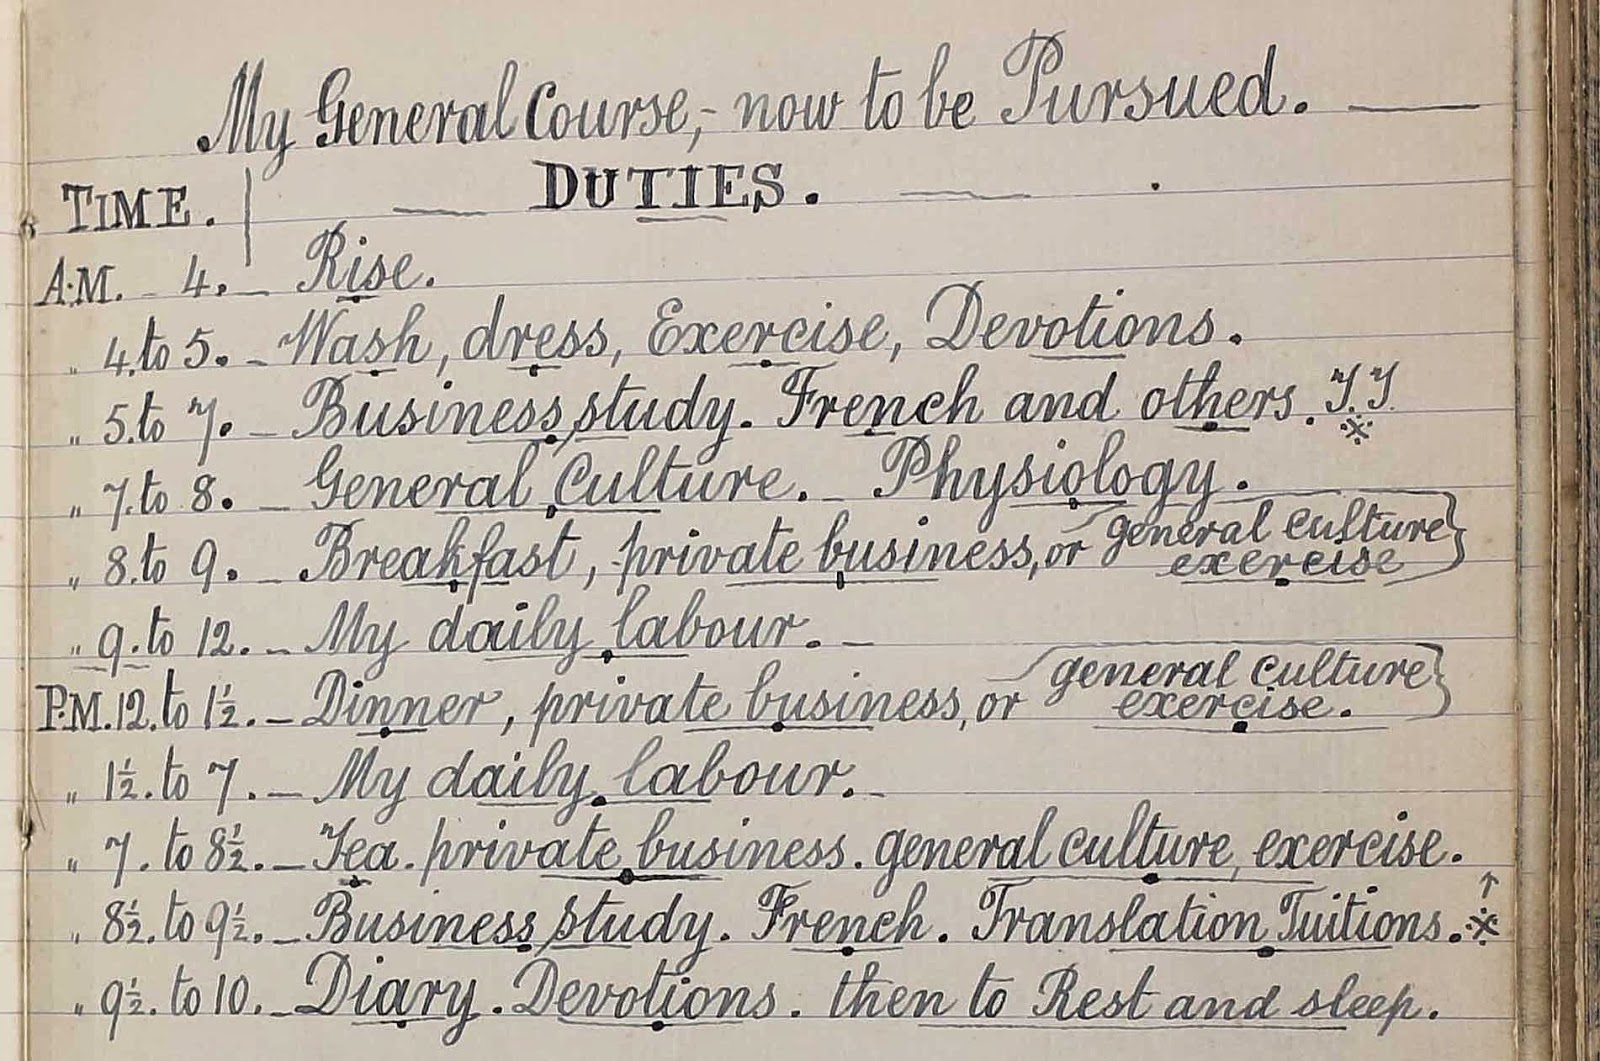 My General Course,- now to be Pursued. —
TIME. | — DUTIES. — .
A.M. - 4. - Rise.
„ 4. to 5. - Wash, dress, Exercise, Devotions.
„ 5. to 7. - Business study. French and others. T.T. ※
„ 7. to 8. - General Culture. - Physiology.
„ 8. to 9. - Breakfast, private business, or general culture
exercise }
„ 9. to 12. - My daily labour. -
P.M. 12. to 1½. - Dinner, private business, or general culture
exercise. }
„ 1½. to 7. - My daily labour. -
„ 7. to 8½. - Tea. private business. general culture, exercise.
„ 8½. to 9½. - Business study. French. Translation Tuitions. ※ ↑
„ 9½. to 10. - Diary. Devotions. then to Rest and sleep.